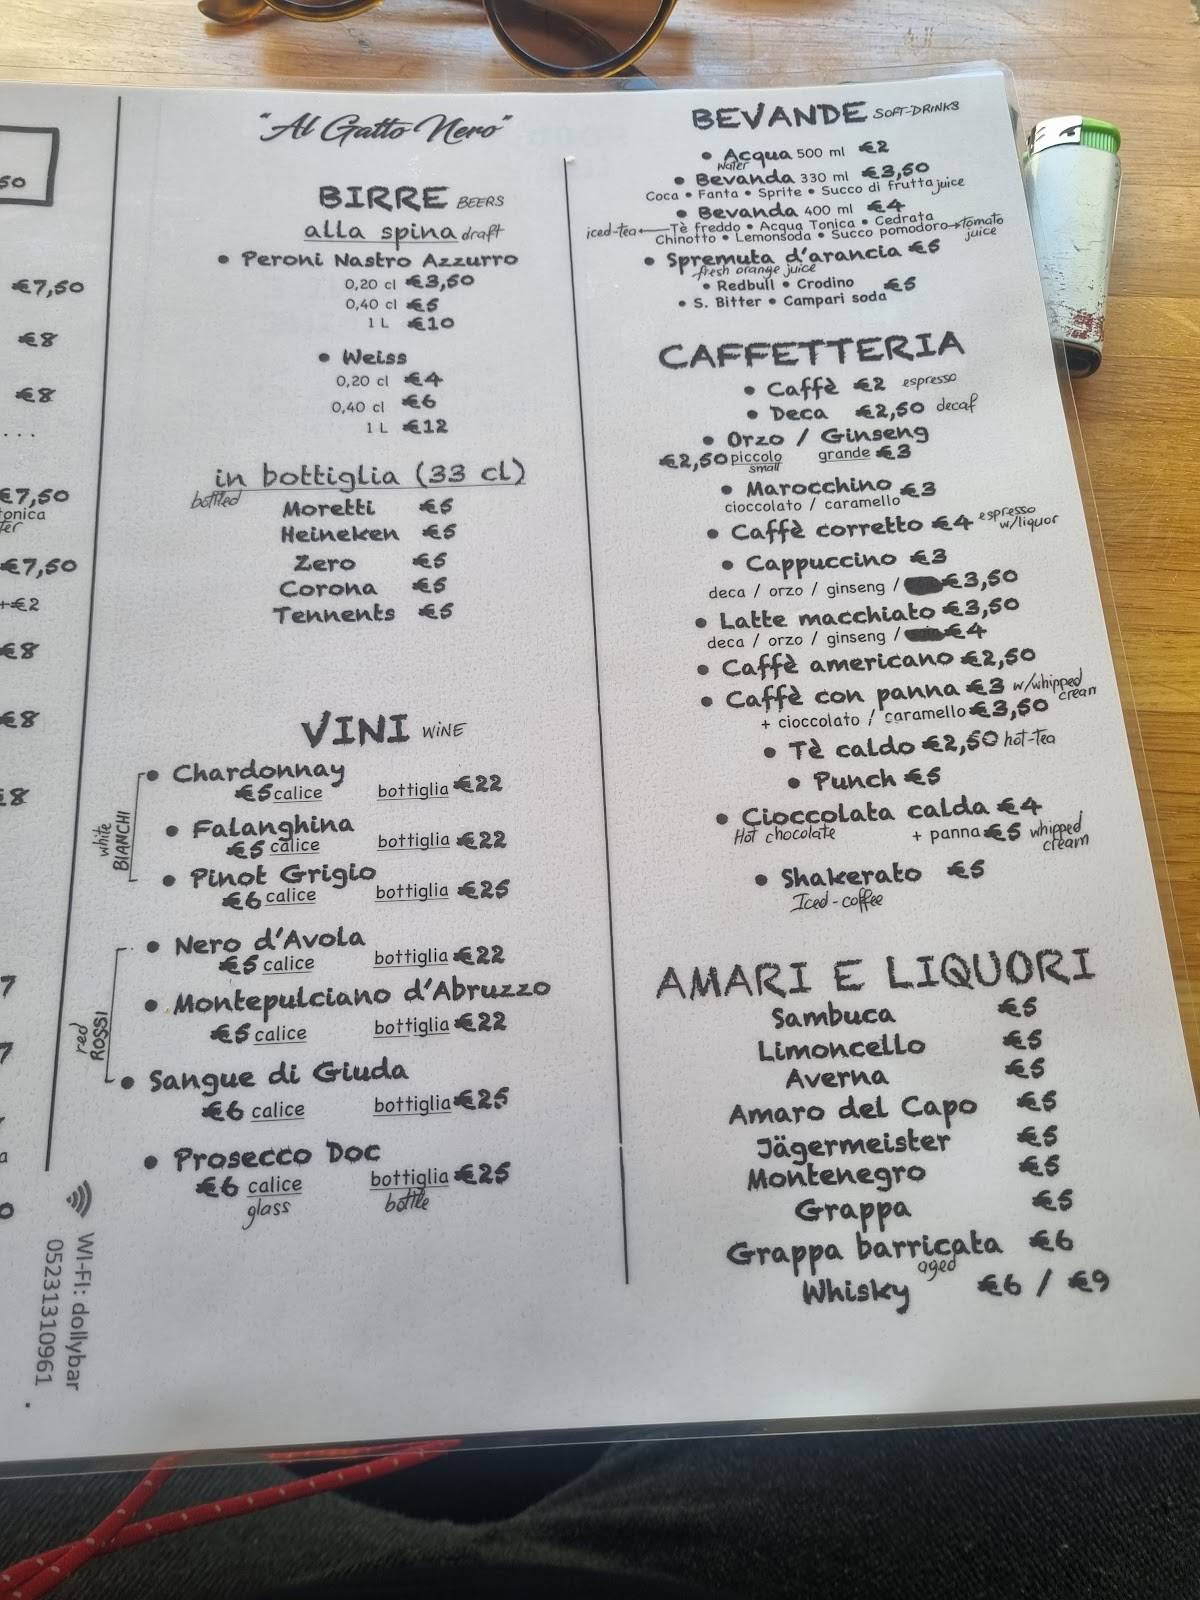 50
€7,50
€8
€8
...
€7,50
tonica
€7,50
+€2
€8
€8
€8
7
7
a
0
"Al Gatto Nero"
BIRRE BEERS
alla spina draft
• Peroni Nastro Azzurro
0,20 cl €3,50
0,40 cl €5
1 L €10
• Weiss
0,20 cl €4
0,40 cl €6
1 L €12
in bottiglia (33 cl)
bottled
Moretti €5
Heineken €5
Zero €5
Corona €5
Tennents €5
VINI WINE
white
BIANCHI
• Chardonnay
€5 calice bottiglia €22
• Falanghina
€5 calice bottiglia €22
• Pinot Grigio
€6 calice bottiglia €25
red
ROSSI
• Nero d'Avola
€5 calice bottiglia €22
• Montepulciano d'Abruzzo
€5 calice bottiglia €22
• Sangue di Giuda
€6 calice bottiglia €25
• Prosecco Doc
€6 calice bottiglia €25
glass bottle
WI-FI: dollybar
05231310961
BEVANDE SOFT-DRINKS
• Acqua 500 ml €2
water
• Bevanda 330 ml €3,50
Coca • Fanta • Sprite • Succo di frutta juice
• Bevanda 400 ml €4
iced-tea Tè freddo • Acqua Tonica • Cedrata
Chinotto • Lemonsoda • Succo pomodoro tomato juice
• Spremuta d'arancia €5
fresh orange juice
• Redbull • Crodino €5
• S. Bitter • Campari soda
CAFFETTERIA
• Caffè €2 espresso
• Deca €2,50 decaf
• Orzo / Ginseng
€2,50 piccolo grande €3
small
• Marocchino €3
cioccolato / caramello
• Caffè corretto €4 espresso w/liquor
• Cappuccino €3
deca / orzo / ginseng / €3,50
• Latte macchiato €3,50
deca / orzo / ginseng / €4
• Caffè americano €2,50
• Caffè con panna €3 w/whipped cream
+ cioccolato / caramello €3,50
• Tè caldo €2,50 hot-tea
• Punch €5
• Cioccolata calda €4
Hot chocolate + panna €5 whipped cream
• Shakerato €5
Iced-coffee
AMARI E LIQUORI
Sambuca €5
Limoncello €5
Averna €5
Amaro del Capo €5
Jägermeister €5
Montenegro €5
Grappa €5
Grappa barricata €6
aged
Whisky €6 / €9